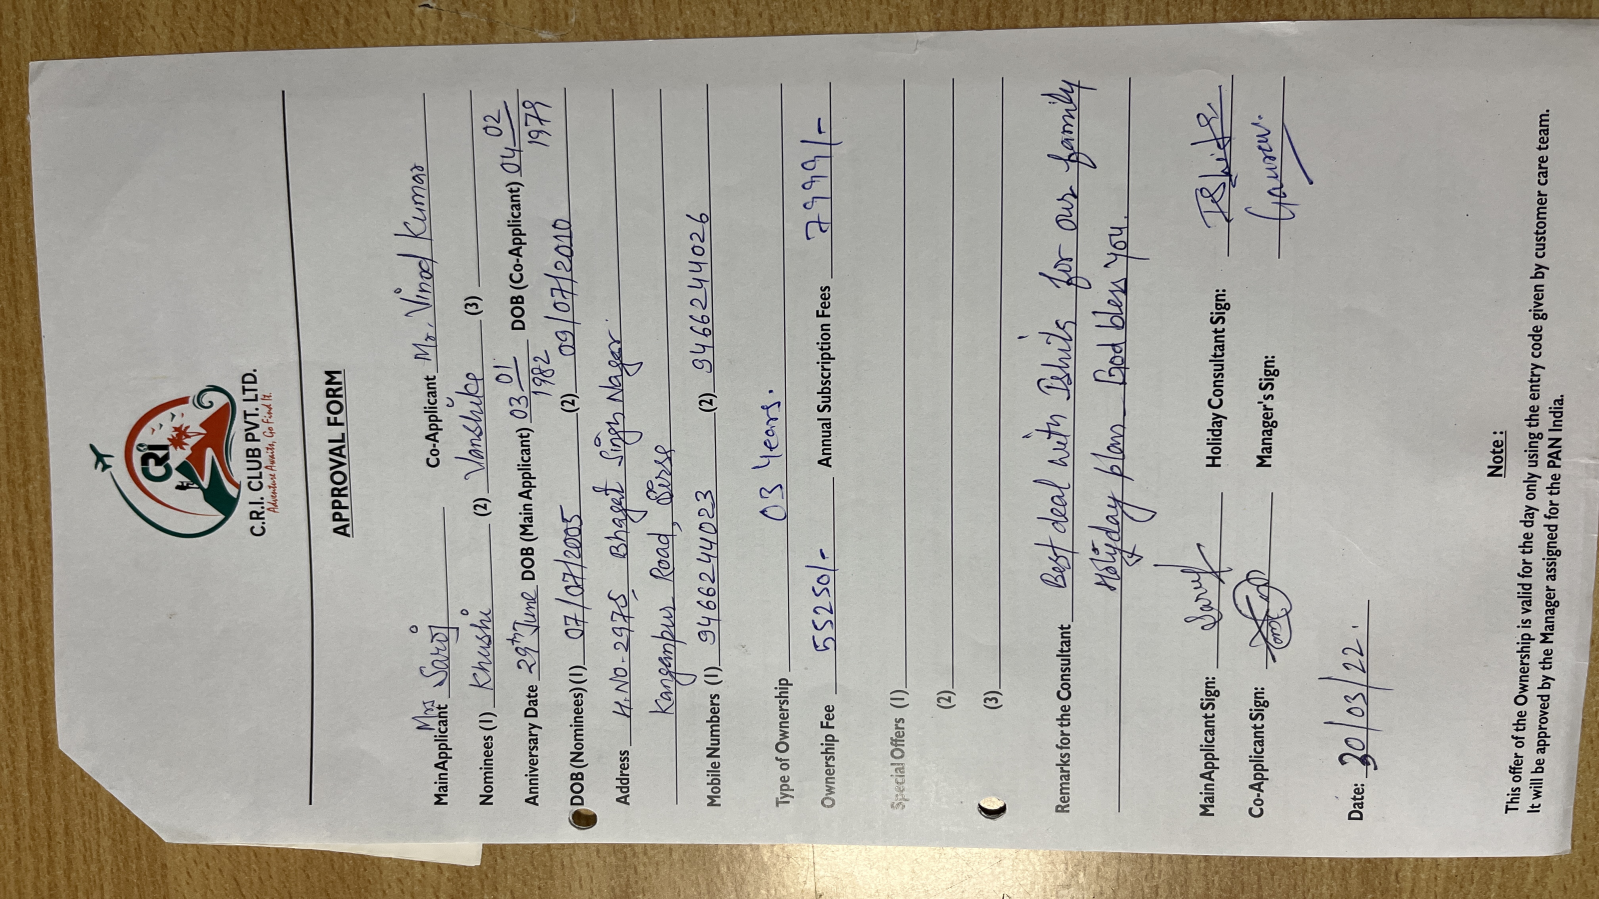 CRI
C.R.I. CLUB PVT. LTD.
Adventure Awaits, Go Find It.
APPROVAL FORM
Main Applicant Mrs Saroj Co-Applicant Mr. Vinod Kumar
Nominees (1) Khushi (2) Vanshika (3)
Anniversary Date 29th June DOB (Main Applicant) 03 01 1982 DOB (Co-Applicant) 04 02 1979
DOB (Nominees) (1) 07/07/2005 (2) 09/07/2010
Address H.No-2975, Bhagat Singh Nagar
Kanganpur Road, Sirsa
Mobile Numbers (1) 9466244023 (2) 9466244026
Type of Ownership 03 Years.
Ownership Fee 55250/- Annual Subscription Fees 7999/-
Special Offers (1)
(2)
(3)
Remarks for the Consultant Best deal with Ishita for our family
Holyday plan God bless you.
Main Applicant Sign: Saroj Holiday Consultant Sign: Ishita
Co-Applicant Sign: Manager's Sign: Gaurav.
Date: 30/03/22.
Note :
This offer of the Ownership is valid for the day only using the entry code given by customer care team.
It will be approved by the Manager assigned for the PAN India.